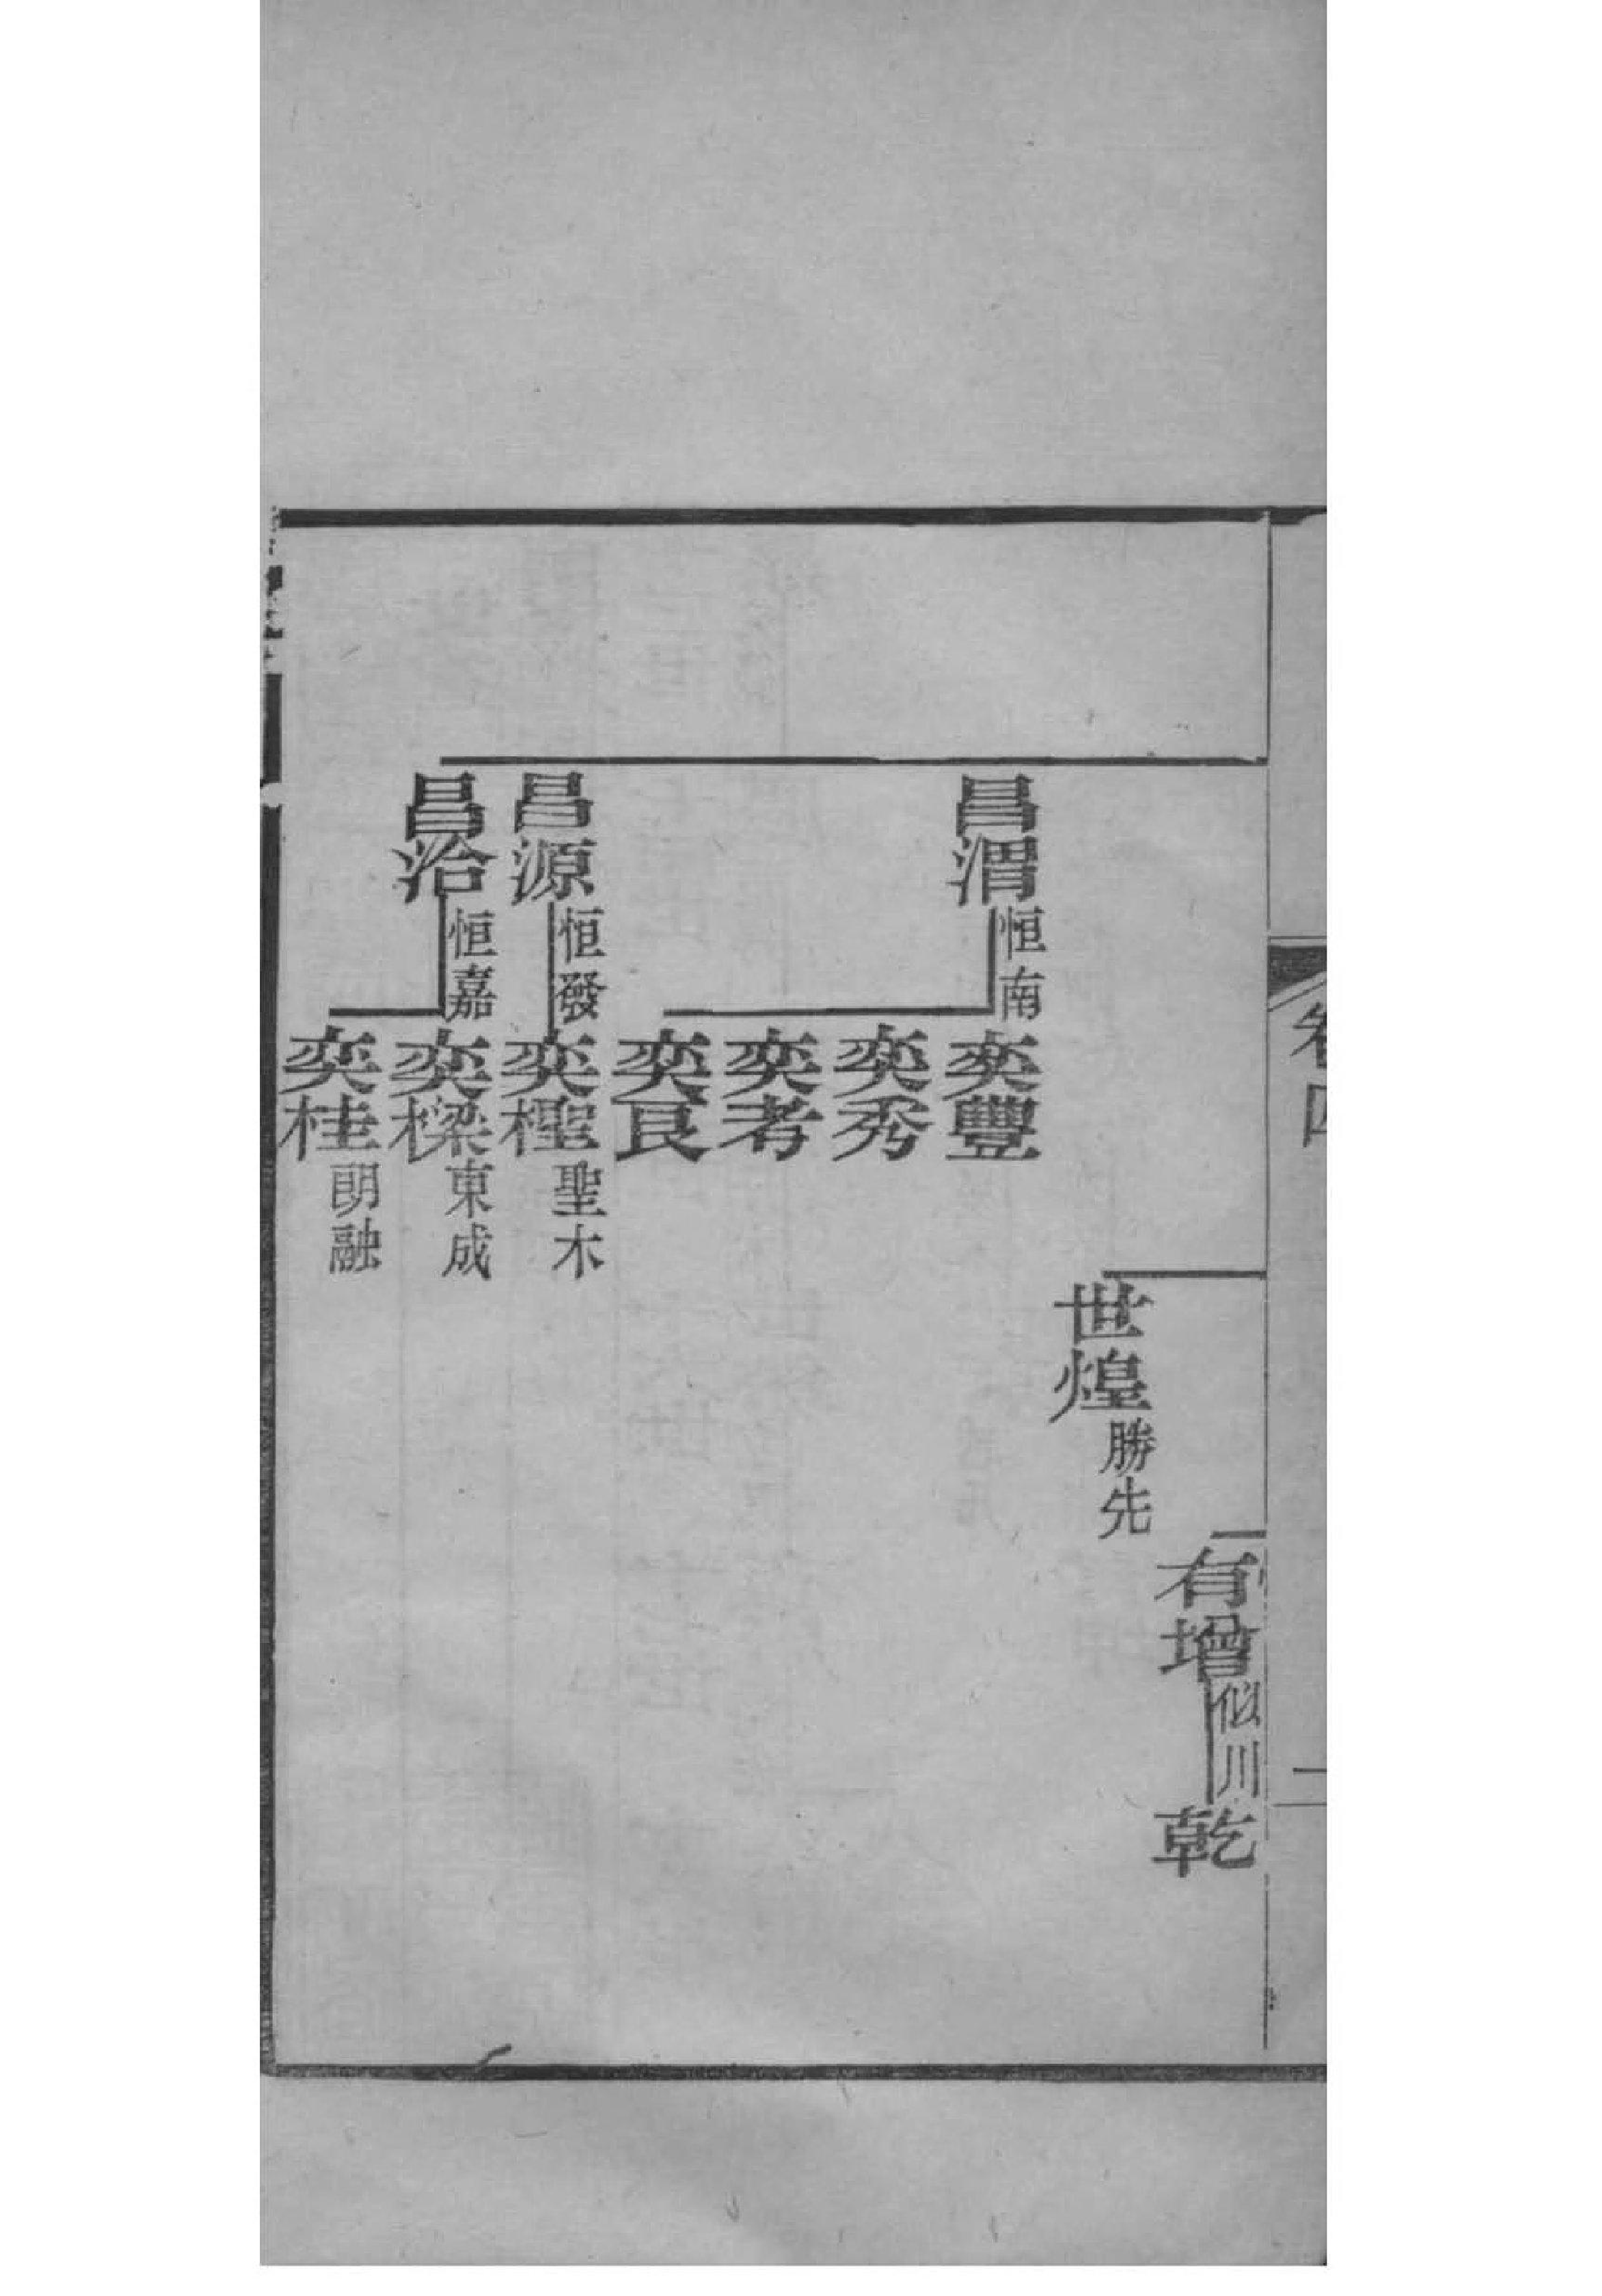 卷四
二
有增
似川
乾
世煌
勝先
昌渭
恒南
奕豐
奕秀
奕考
奕良
昌源
恒發
奕檉
聖木
昌治
恒嘉
奕樑
東成
奕桂
朗融